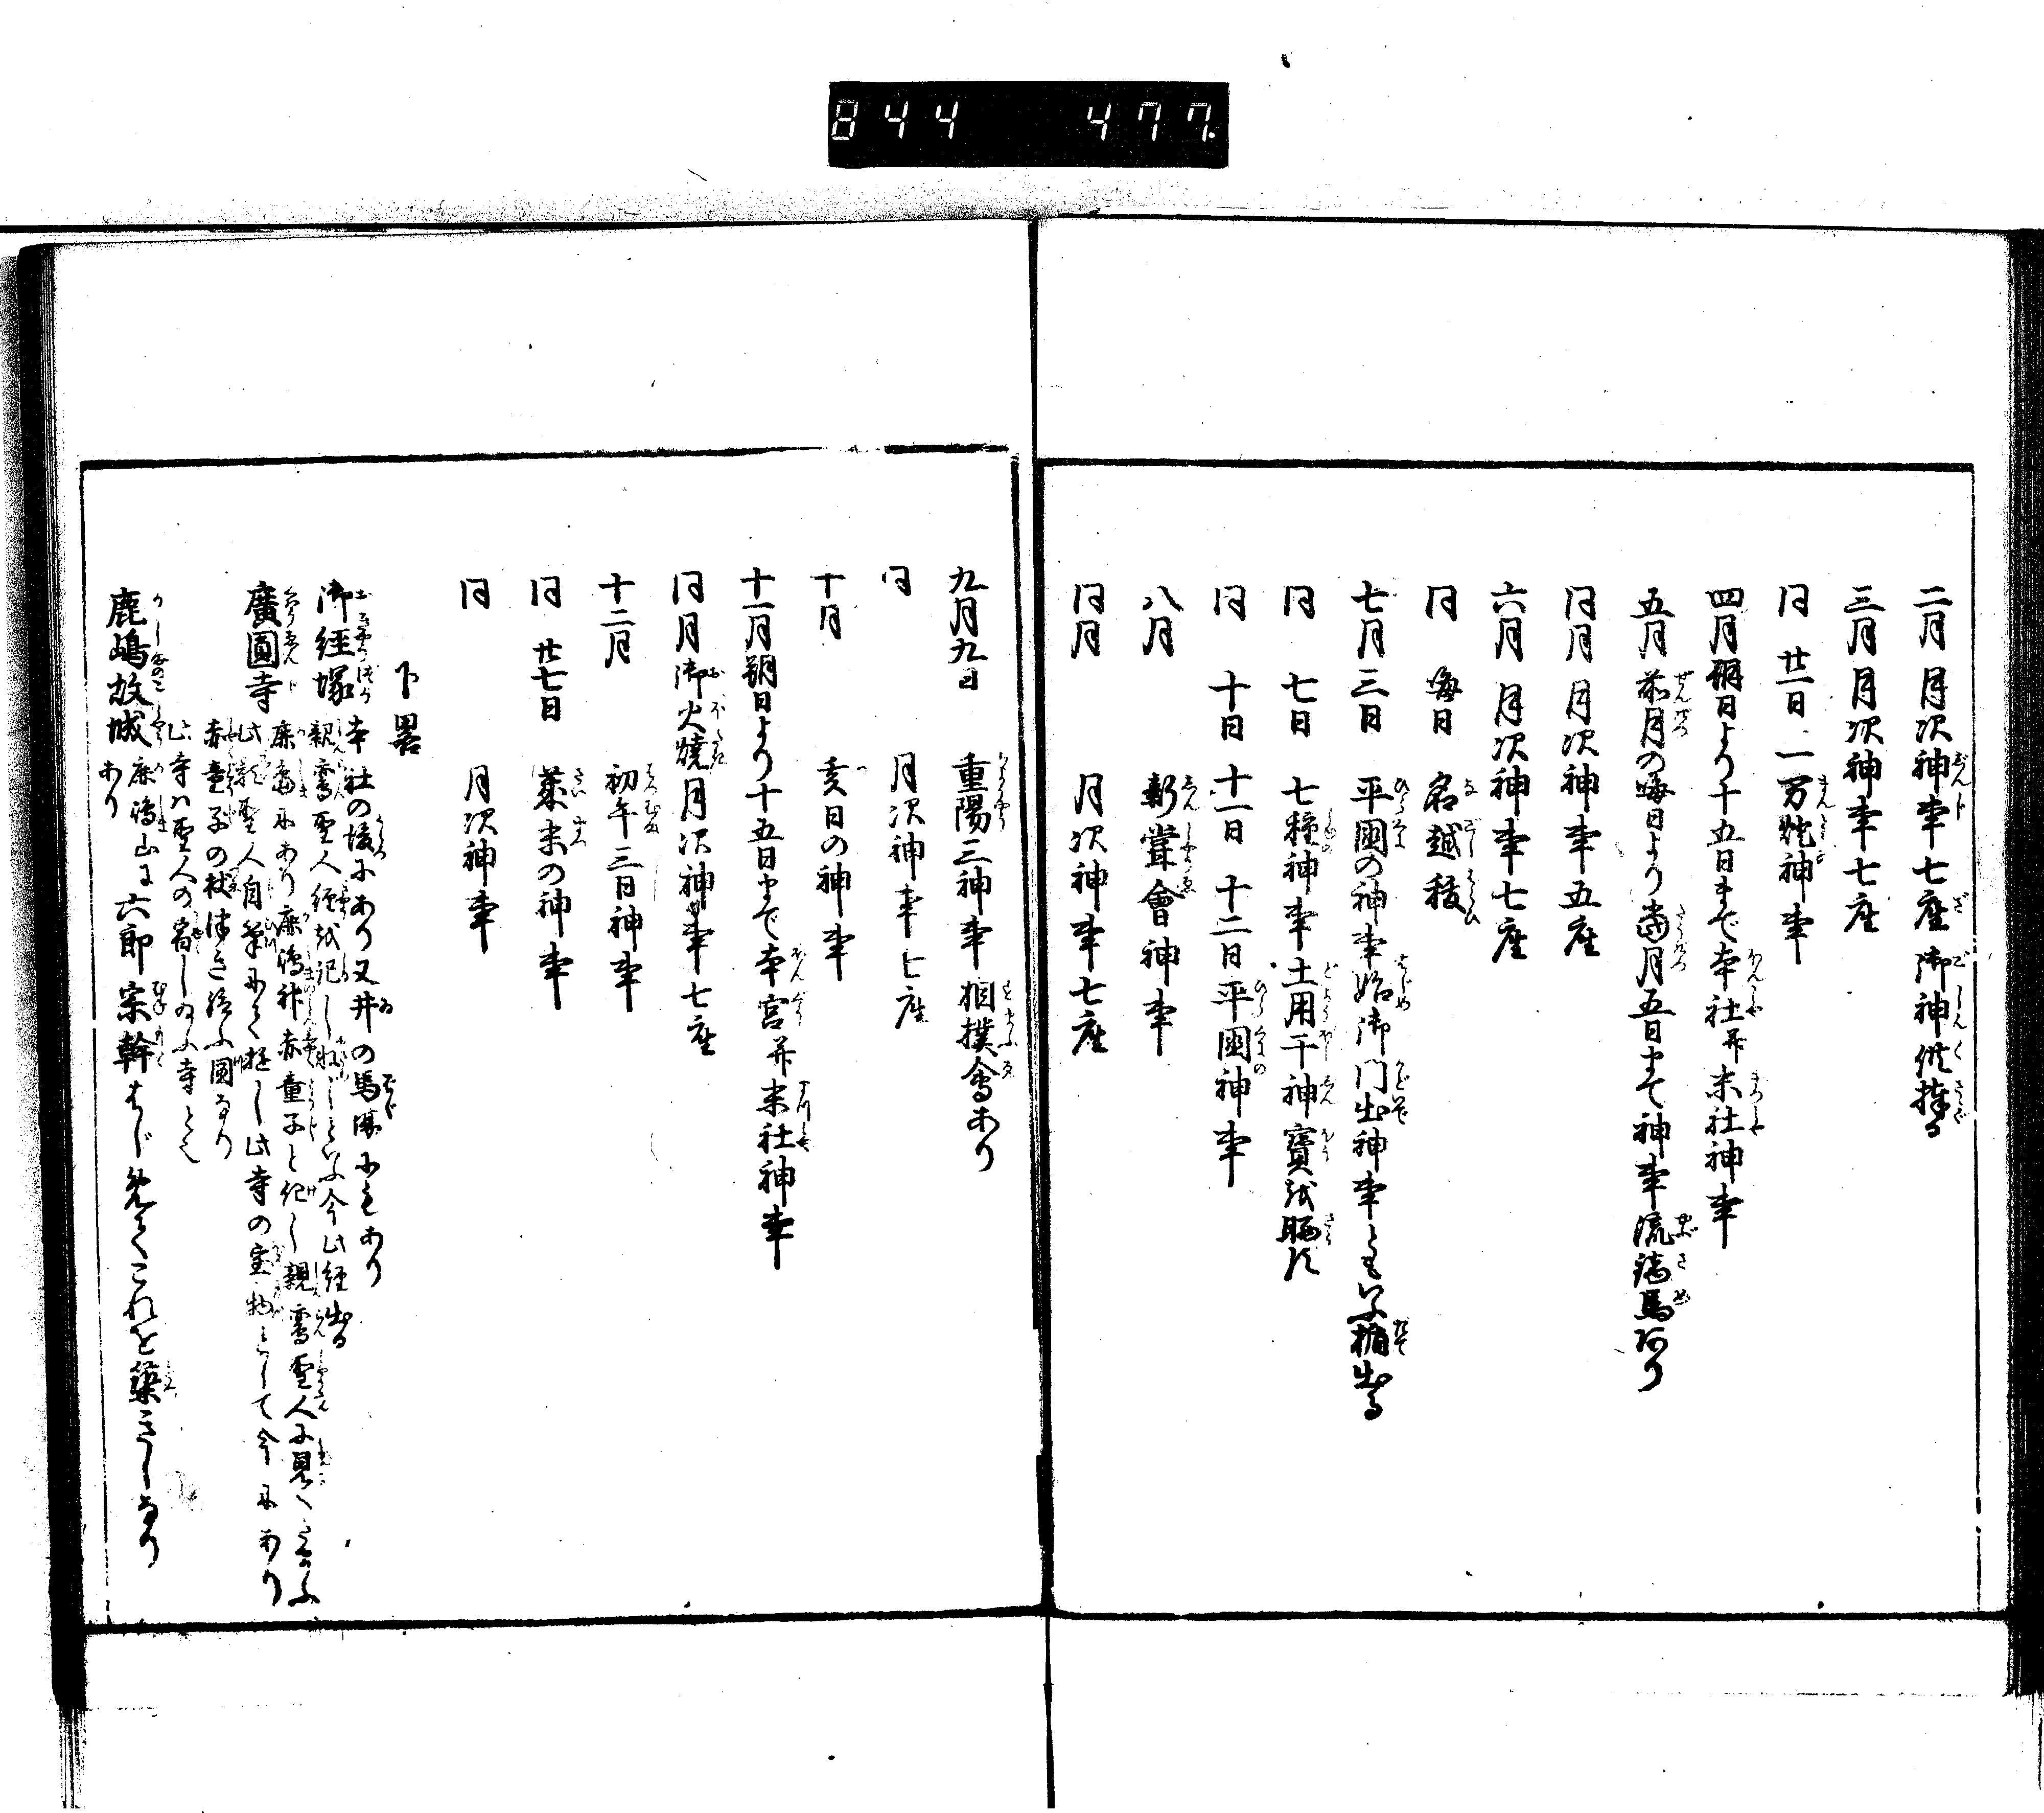 844 477
二月 月次神事七座 御神供捧る
三月 月次神事七座
同 廿一日 一万燈神事
四月朔日より十五日まで本社并末社神事
五月 前月の晦日より當月五日まで神事流鏑馬あり
同月 月次神事五座
六月 月次神事七座
同 晦日 名越祓
七月三日 平國の神事始御門出神事ともいふ楯出る
同 七日 七種神事土用干神寶を晒す
同 十日 十一日 十二日平國神事
八月 新嘗會神事
同月 月次神事七座
九月九日 重陽三神事 相撲會あり
同 月次神事七座
十月 亥日の神事
十一月朔日より十五日まで本宮并末社神事
同月 御火焼月次神事七座
十二月 初午三日神事
同 廿七日 歳末の神事
同 月次神事
下畧
御経塚 本社の後にあり又井の馬場にもあり
親鸞聖人経を記し といふ今此経出る
廣圓寺 鹿嶋にあり鹿嶋神赤童子と化し親鸞聖人に見へ給ふ
此 聖人自筆にて 此寺の宝物として今にあり
赤童子の杖 給ふ圖なり
此寺は聖人の宿し給ふ寺とぞ
鹿嶋故城 鹿嶋山に六郎宗幹はじめてこれを築きしなり
あり